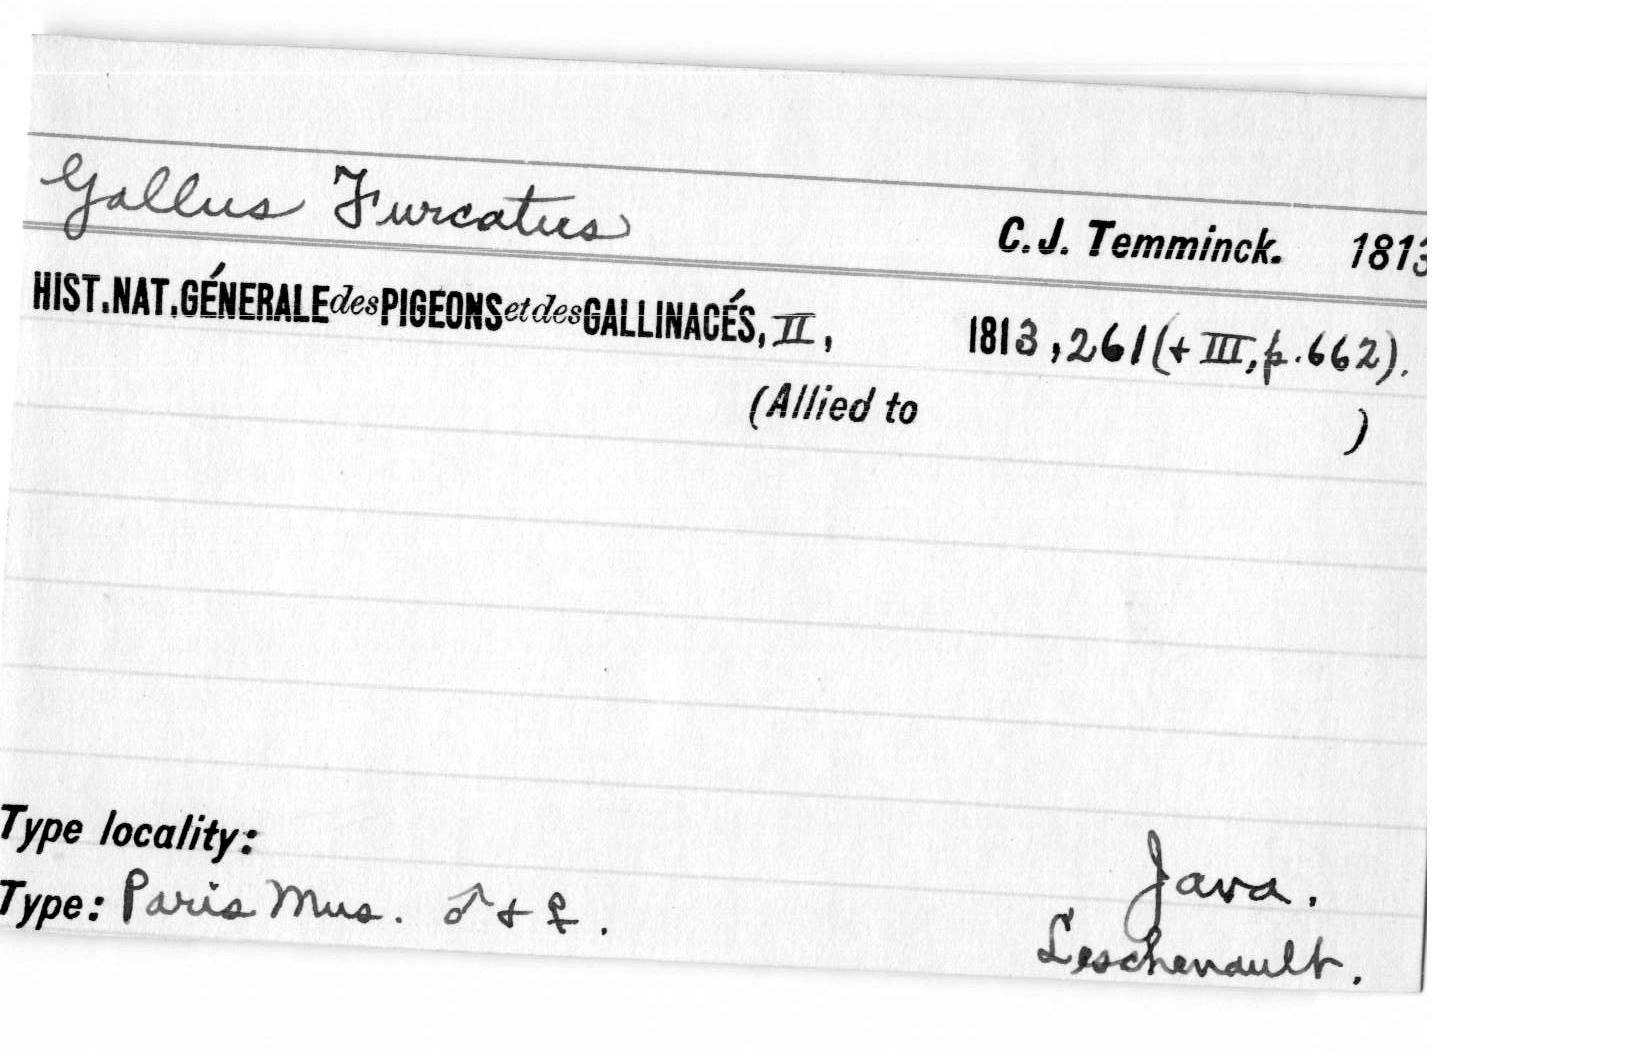 Gallus Furcatus C.J. Temminck. 1813
HIST.NAT.GÉNERALE des PIGEONS et des GALLINACÉS, II, 1813, 261 (+ III, p. 662).
(Allied to )
Type locality: Java.
Type: Paris Mus. ♂ + ♀. Leschenault.